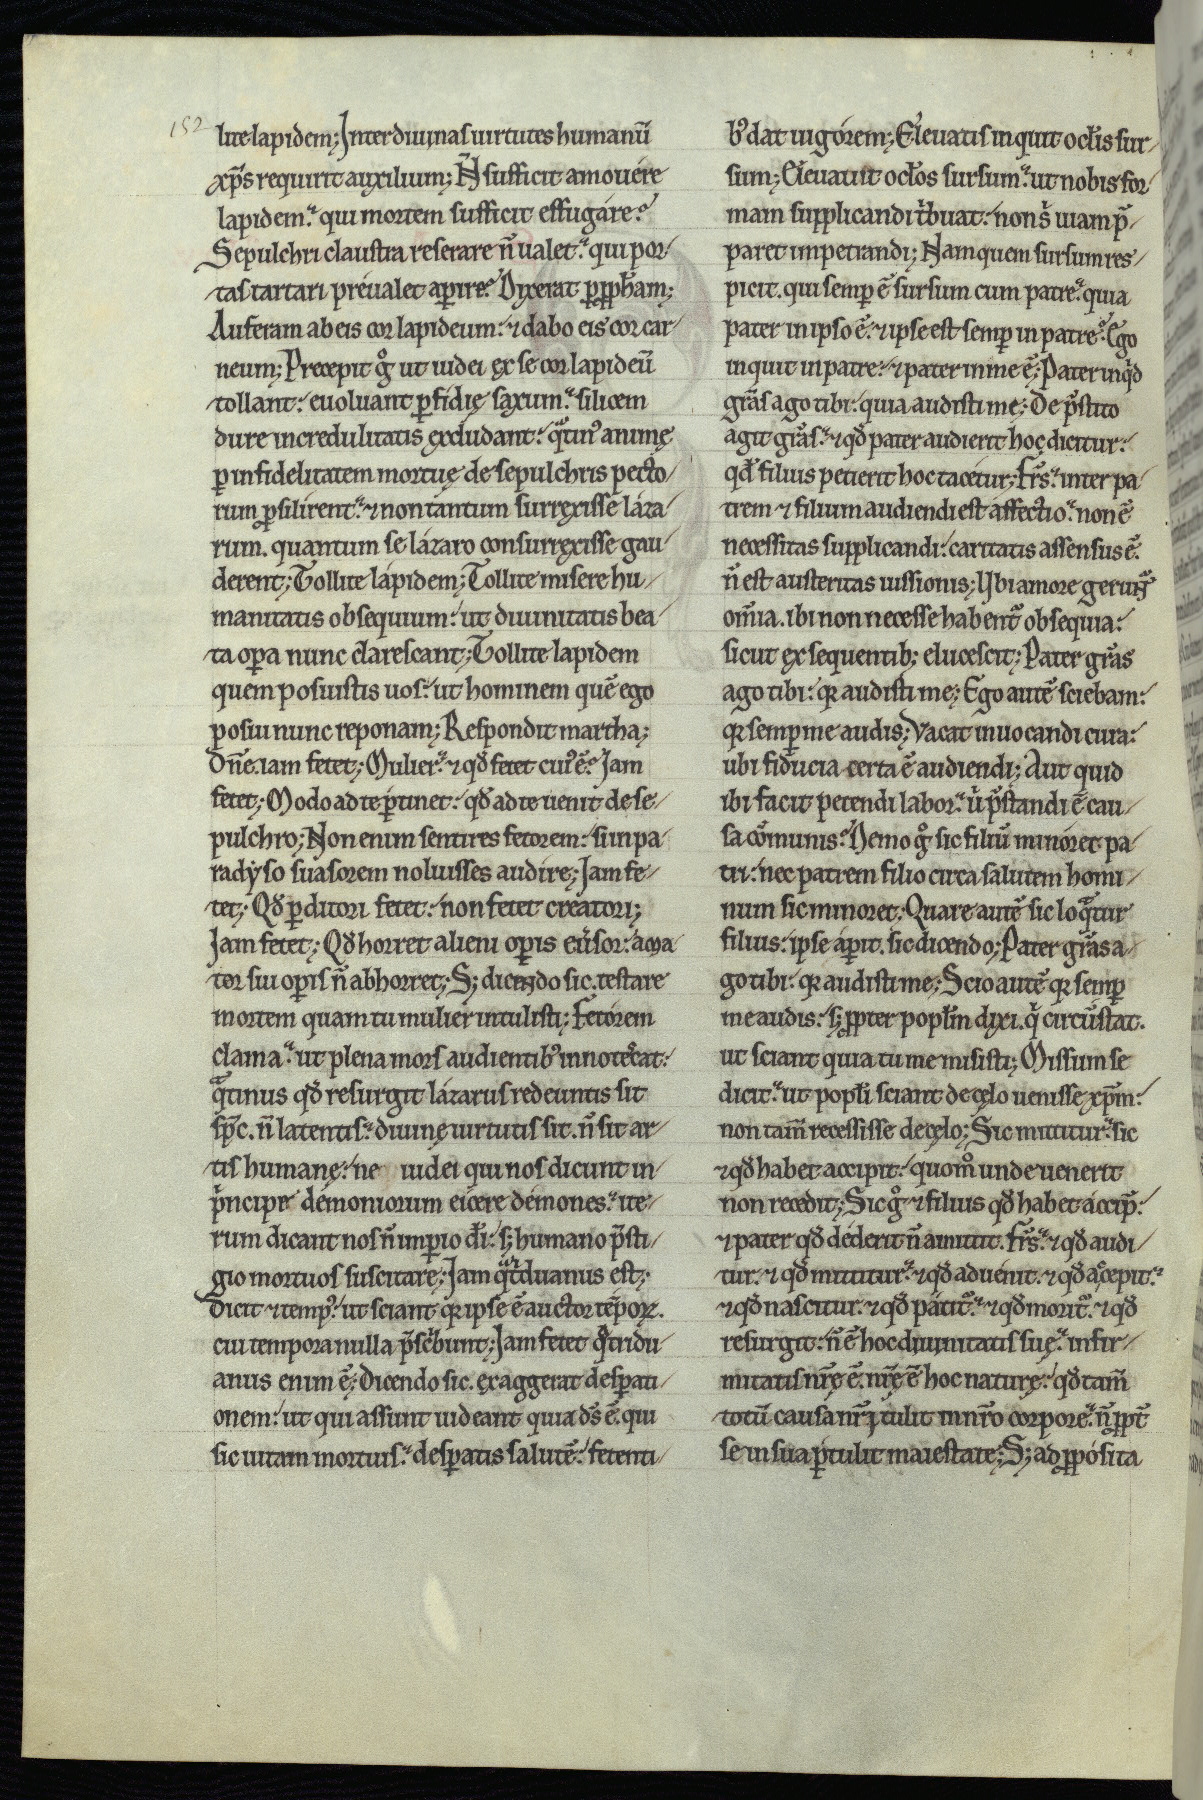 152
lite lapidem; Inter diuinas uirtutes humanū
xp̄s requirit auxilium; N̄ sufficit amouere
lapidem. qui mortem sufficit effugare?
Sepulchri claustra reserare n̄ ualet. qui por-
tas tartari preualet aperire? Dixerat ꝑ ꝓph̄am;
Auferam ab eis cor lapideum. ⁊ dabo eis cor car-
neum; Precepit g̊ ut iudei ex se cor lapideū
tollant. euoluant ꝑfidię saxum. silicem
dure incredulitatis excludant. qᵃtin᾽ animę
ꝑ infidelitatem mortuę de sepulchris pecto-
rum ꝓsilirent. ⁊ non tantum surrexisse laza-
rum. quantum se lazaro consurrexisse gau
derent; Tollite lapidem; Tollite misere hu-
manitatis obsequium. ut diuinitatis bea-
ta oꝑa nunc clarescant; Tollite lapidem
quem posuistis uos. ut hominem quē ego
posui nunc reponam; Respondit martha;
Dn̄e. iam fetet; Mulier. ⁊ qđ fetet cui᾽ ē? Iam
fetet; Modo ad te ꝑtinet. qđ ad te uenit de se-
pulchro; Non enim sentires fetorem. si in pa-
radyso suasorem noluisses audire; Iam fe-
tet; Qđ ꝑditori fetet. non fetet creatori;
Iam fetet; Qđ horret alieni oꝑis eūsor. ama
tor sui oꝑis n̄ abhorret; S; dicendo sic. testare
mortem quam tu mulier intulisti; Fetorem
clama. ut plena mors audientib᾽ innotescat.
qᵃtinus qđ resurgit lazarus redeuntis sit
sp̄c. n̄ latentis. diuinę uirtutis sit. n̄ sit ar-
tis humanę. ne iudei qui nos dicunt in
pⁱncipe demoniorum eicere demones. ite-
rum dicant nos n̄ imꝑio dī. s; humano p̄sti-
gio mortuos suscitare; Iam qᵃtⁱduanus est;
Dicit ⁊ temp᾽. ut sciant qꝛ ipse ē auctor tēpoꝝ.
cui tempora nulla p̄scⁱbunt; Iam fetet qᵃtridu-
anus enim ē; Dicendo sic. exaggerat desꝑati-
onem. ut qui assunt uideant quia dš ē. qui
sic uitam mortuis. desꝑatis salutē. fetenti-
b᾽ dat uigorem; Eleuatis inquit ocľis sur-
sum; Eleuauit ocľos sursum. ut nobis for
mam supplicandi tⁱbuat. non sⁱ uiam p̄-
paret impetrandi; Nam quem sursum res-
picit. qui semꝑ ē sursum cum patre. quia
pater in ipso ē. ⁊ ipse est semꝑ in patre? Ego
inquit in patre. ⁊ pater in me ē; Pater inqⁱd
gr̄as ago tibi. quia audisti me; De p̄stito
agit gr̄as. ⁊ qđ pater audierit hoc dicitur.
qđ filius petierit hoc tacetur; Fr̄s. inter pa-
trem ⁊ filium audiendi est affectio. non ē
necessitas supplicandi. caritatis assensus ē.
n̄ est austeritas iussionis; Vbi amore gerunt᾽
om̄ia. ibi non necesse habent᾽ obsequia.
sicut ex sequentib; elucescit; Pater gr̄as
ago tibi. qꝛ audisti me; Ego autē sciebam.
qꝛ semꝑ me audis; Vacat inuocandi cura.
ubi fiducia certa ē audiendi; Aut quid
ibi facit petendi labor. uⁱ p̄standi ē cau-
sa cōmunis? Nemo g̊ sic filiū minoret pa-
tri. nec patrem filio circa salutem homi-
num sic minoret; Quare autē sic loqᵃtur
filius. ipse aꝑit. sic dicendo; Pater gr̄as a-
go tibi. qꝛ audisti me; Scio autē qꝛ semꝑ
me audis. s; ꝓpter popľm dixi. qⁱ circūstat.
ut sciant quia tu me misisti; Missum se
dicit. ut popľi sciant de cęlo uenisse xp̄m.
non tam̄ recessisse de cęlo; Sic mittitur. sic
⁊ qđ habet accipit. quom̊ unde uenerit
non recedit; Sic g̊ ⁊ filius qđ habet accip̄.
⁊ pater qđ dederit n̄ amittit. Fr̄s. ⁊ qđ audi-
tur. ⁊ qđ mittitur. ⁊ qđ aduenit. ⁊ qđ accepit.
⁊ qđ nascitur. ⁊ qđ patit᾽. ⁊ qđ morit᾽. ⁊ qđ
resurgit. n̄ ē hoc diuinitatis suę. infir-
mitatis nr̄ę ē. nr̄ę ē hoc naturę. qđ tam̄
totū causa nr̄i tulit in nr̄o corpore. n̄ ꝓpt᾽
se in sua ꝑtulit maiestate; S; ad ꝓposita